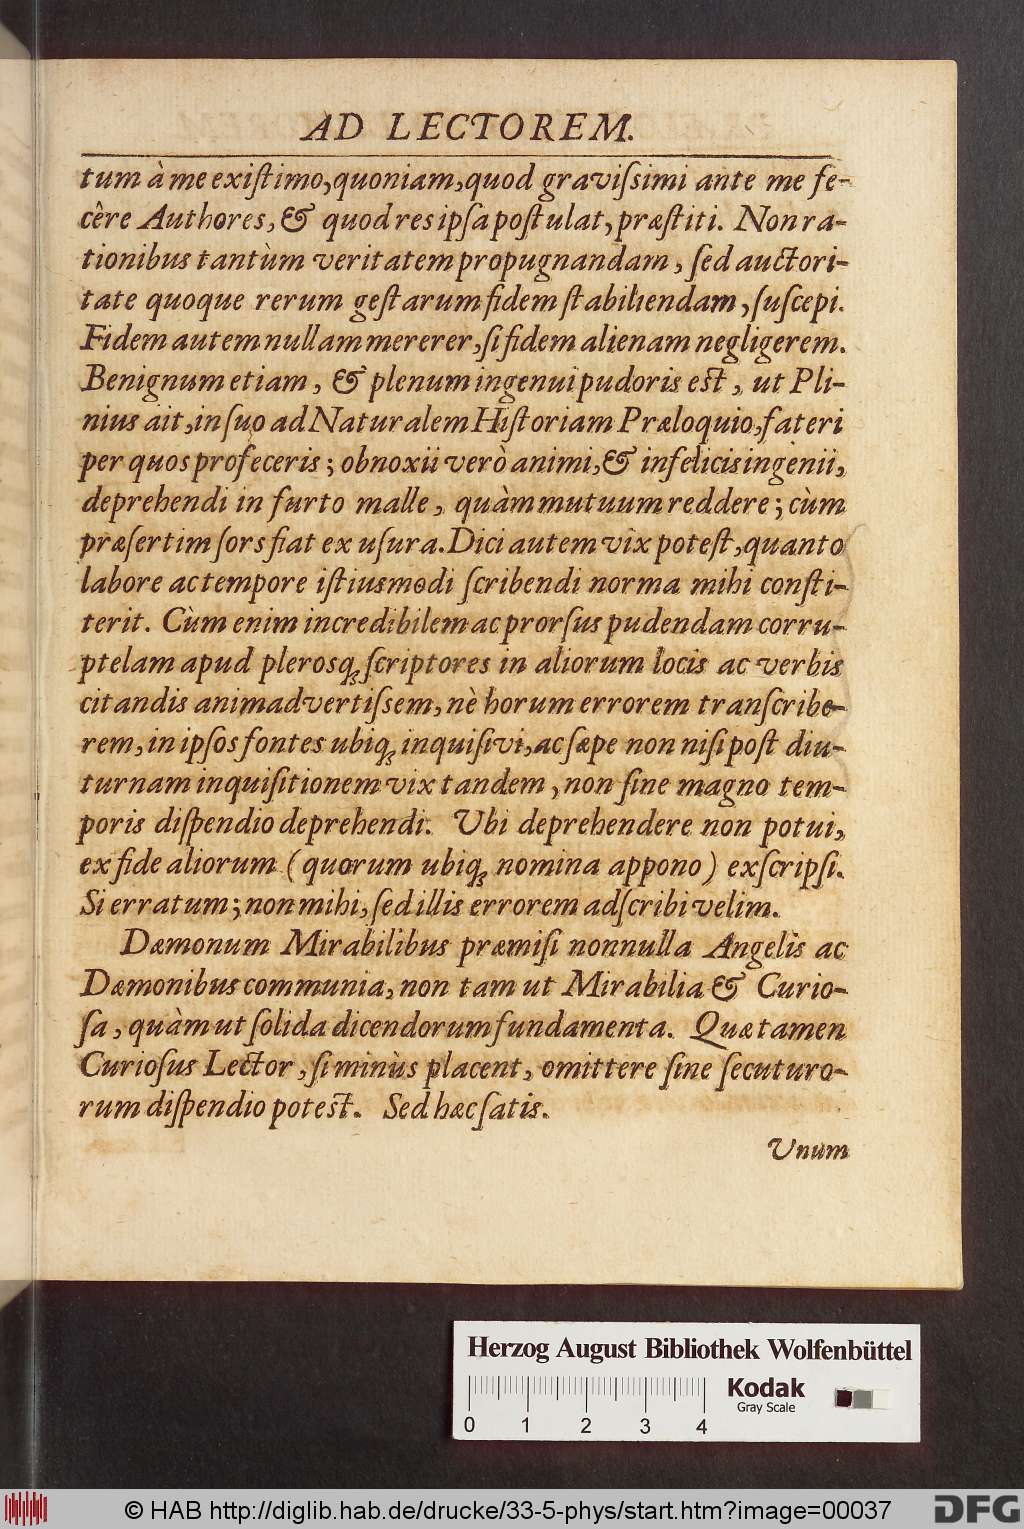 AD LECTOREM.
tum à me exiſtimo, quoniam, quod graviſsimi ante me fe-
cêre Authores, & quod res ipſa poſtulat, præſtiti. Non ra-
tionibus tantùm veritatem propugnandam, ſed auctori-
tate quoque rerum geſtarum fidem ſtabiliendam, ſuſcepi.
Fidem autem nullam mererer, ſi fidem alienam negligerem.
Benignum etiam, & plenum ingenui pudoris est, ut Pli-
nius ait, in ſuo ad Naturalem Hiſtoriam Præloquio, fateri
per quos profeceris; obnoxii verò animi, & infelicis ingenii,
deprehendi in furto malle, quàm mutuum reddere; cùm
præſertim ſors fiat ex uſura. Dici autem vix poteſt, quanto
labore ac tempore iſtiusmodi ſcribendi norma mihi conſti-
terit. Cùm enim incredibilem ac prorſus pudendam corru-
ptelam apud plerosq; ſcriptores in aliorum locis ac verbis
citandis animadvertiſsem, nè horum errorem tranſcribe-
rem, in ipſos fontes ubiq; inquiſivi, ac ſæpe non niſi poſt diu-
turnam inquiſitionem vix tandem, non ſine magno tem-
poris diſpendio deprehendi. Ubi deprehendere non potui,
ex fide aliorum (quorum ubiq; nomina appono) exſcripſi.
Si erratum; non mihi, ſed illis errorem adſcribi velim.
Dæmonum Mirabilibus præmiſi nonnulla Angelis ac
Dæmonibus communia, non tam ut Mirabilia & Curio-
ſa, quàm ut ſolida dicendorum fundamenta. Quæ tamen
Curioſus Lector, ſi minùs placent, omittere ſine ſecuturo-
rum diſpendio potest. Sed hæc ſatis.
Unum
Herzog August Bibliothek Wolfenbüttel
Kodak
Gray Scale
0 1 2 3 4
© HAB http://diglib.hab.de/drucke/33-5-phys/start.htm?image=00037
DFG